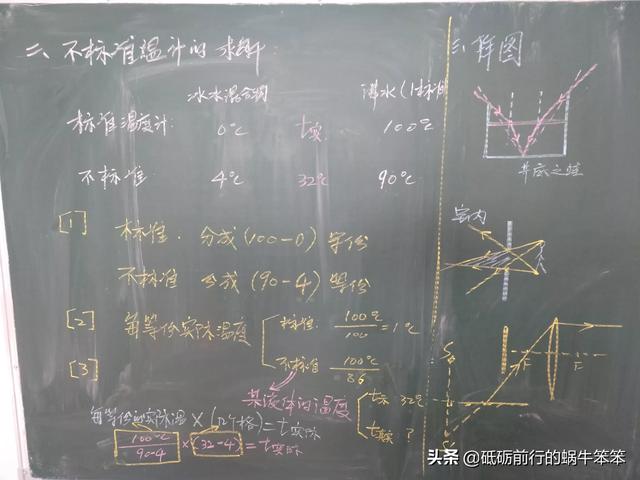 二、不标准温计的求解:
冰水混合物 沸水(1标准
标准温度计: 0℃ t实 100℃
不标准: 4℃ 32℃ 90℃
[1] 标准. 分成(100-0)等份
不标准 分成(90-4)等份
[2] 每等份实际温度 标准. 100℃/100=1℃
[3] 不标准 100℃/86
某液体的温度
每等份的实际温×(几个格)=t实际
100℃/90-4×(32-4)=t实际
t示 32℃
t实 ?
三、作图
井底之蛙
室内
F F
S
头条 @砥砺前行的蜗牛笨笨